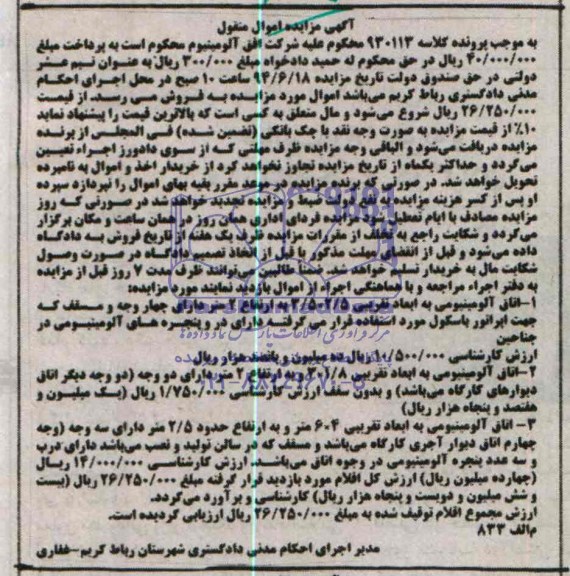 آگهی مزایده اموال منقول
به موجب پرونده کلاسه ۹۳۰۱۱۳ محکوم علیه شرکت افق آلومینیوم محکوم است به پرداخت مبلغ
۴۰/۰۰۰/۰۰۰ ریال در حق محکوم له حمید دادخواه مبلغ ۳۰۰/۰۰۰ ریال به عنوان نیم عشر
دولتی در حق صندوق دولت تاریخ مزایده ۹۴/۶/۱۸ ساعت ۱۰ صبح در محل اجرای احکام
مدنی دادگستری رباط کریم می‌باشد اموال مورد مزایده به فروش می رسد. از قیمت
۲۶/۲۵۰/۰۰۰ ریال شروع می‌شود و مال متعلق به کسی است که بالاترین قیمت را پیشنهاد نماید
۱۰٪ از قیمت مزایده به صورت وجه نقد یا چک بانکی (تضمین شده) فی المجلس از برنده
مزایده دریافت می‌شود و الباقی وجه مزایده ظرف مهلتی که از سوی دادورز اجراء تعیین
می‌گردد و حداکثر یکماه از تاریخ مزایده تجاوز نخواهد کرد از خریدار اخذ و اموال به نامبرده
تحویل خواهد شد. در صورتی که برنده مزایده در موعد مقرر بقیه بهای اموال را نپردازد سپرده
او پس از کسر هزینه مزایده به نفع دولت ضبط و مزایده تجدید خواهد شد در صورتی که روز
مزایده مصادف با ایام تعطیل باشد مزایده فردای اداری همان روز در همان ساعت و مکان برگزار
می‌گردد و شکایت راجع به تخلف از مقررات مزایده ظرف یک هفته از تاریخ فروش به دادگاه
داده می‌شود و قبل از انقضای مهلت مذکور یا قبل از اتخاذ تصمیم دادگاه در صورت وصول
شکایت مال به خریدار تسلیم نخواهد شد. ضمناً طالبین می‌توانند ظرف مدت ۷ روز قبل از مزایده
به دفتر اجراء مراجعه و با هماهنگی اجراء از اموال بازدید نمایند مورد مزایده:
۱-اتاق آلومینیومی به ابعاد تقریبی ۲/۵-۳/۵ به ارتفاع ۲ متر دارای چهار وجه و مسقف که
جهت اپراتور باسکول مورد استفاده قرار می گرفته دارای در و پنجره های آلومینیومی در
جناحین
ارزش کارشناسی ۱۰/۵۰۰/۰۰۰ ریال ده میلیون و پانصد هزار ریال
۲-اتاق آلومینیومی به ابعاد تقریبی ۱/۸ به ارتفاع ۲ متر دارای دو وجه (دو وجه دیگر اتاق
دیوارهای کارگاه می‌باشد) و بدون سقف ارزش کارشناسی ۱/۷۵۰/۰۰۰ ریال (یک میلیون و
هفتصد و پنجاه هزار ریال)
۳- اتاق آلومینیومی به ابعاد تقریبی ۴×۶ متر و به ارتفاع حدود ۲/۵ متر دارای سه وجه (وجه
چهارم اتاق دیوار آجری کارگاه می‌باشد و مسقف که در سالن تولید و نصب می‌باشد دارای درب
و سه عدد پنجره آلومینیومی در وجوه اتاق می‌باشد. ارزش کارشناسی ۱۴/۰۰۰/۰۰۰ ریال
(چهارده میلیون ریال) ارزش کل اقلام مورد بازدید قرار گرفته مبلغ ۲۶/۲۵۰/۰۰۰ ریال (بیست
و شش میلیون و دویست و پنجاه هزار ریال) کارشناسی و برآورد می‌گردد.
ارزش مجموع اقلام توقیف شده به مبلغ ۲۶/۲۵۰/۰۰۰ ریال ارزیابی گردیده است.
م الف ۸۳۳
مدیر اجرای احکام مدنی دادگستری شهرستان رباط کریم-غفاری